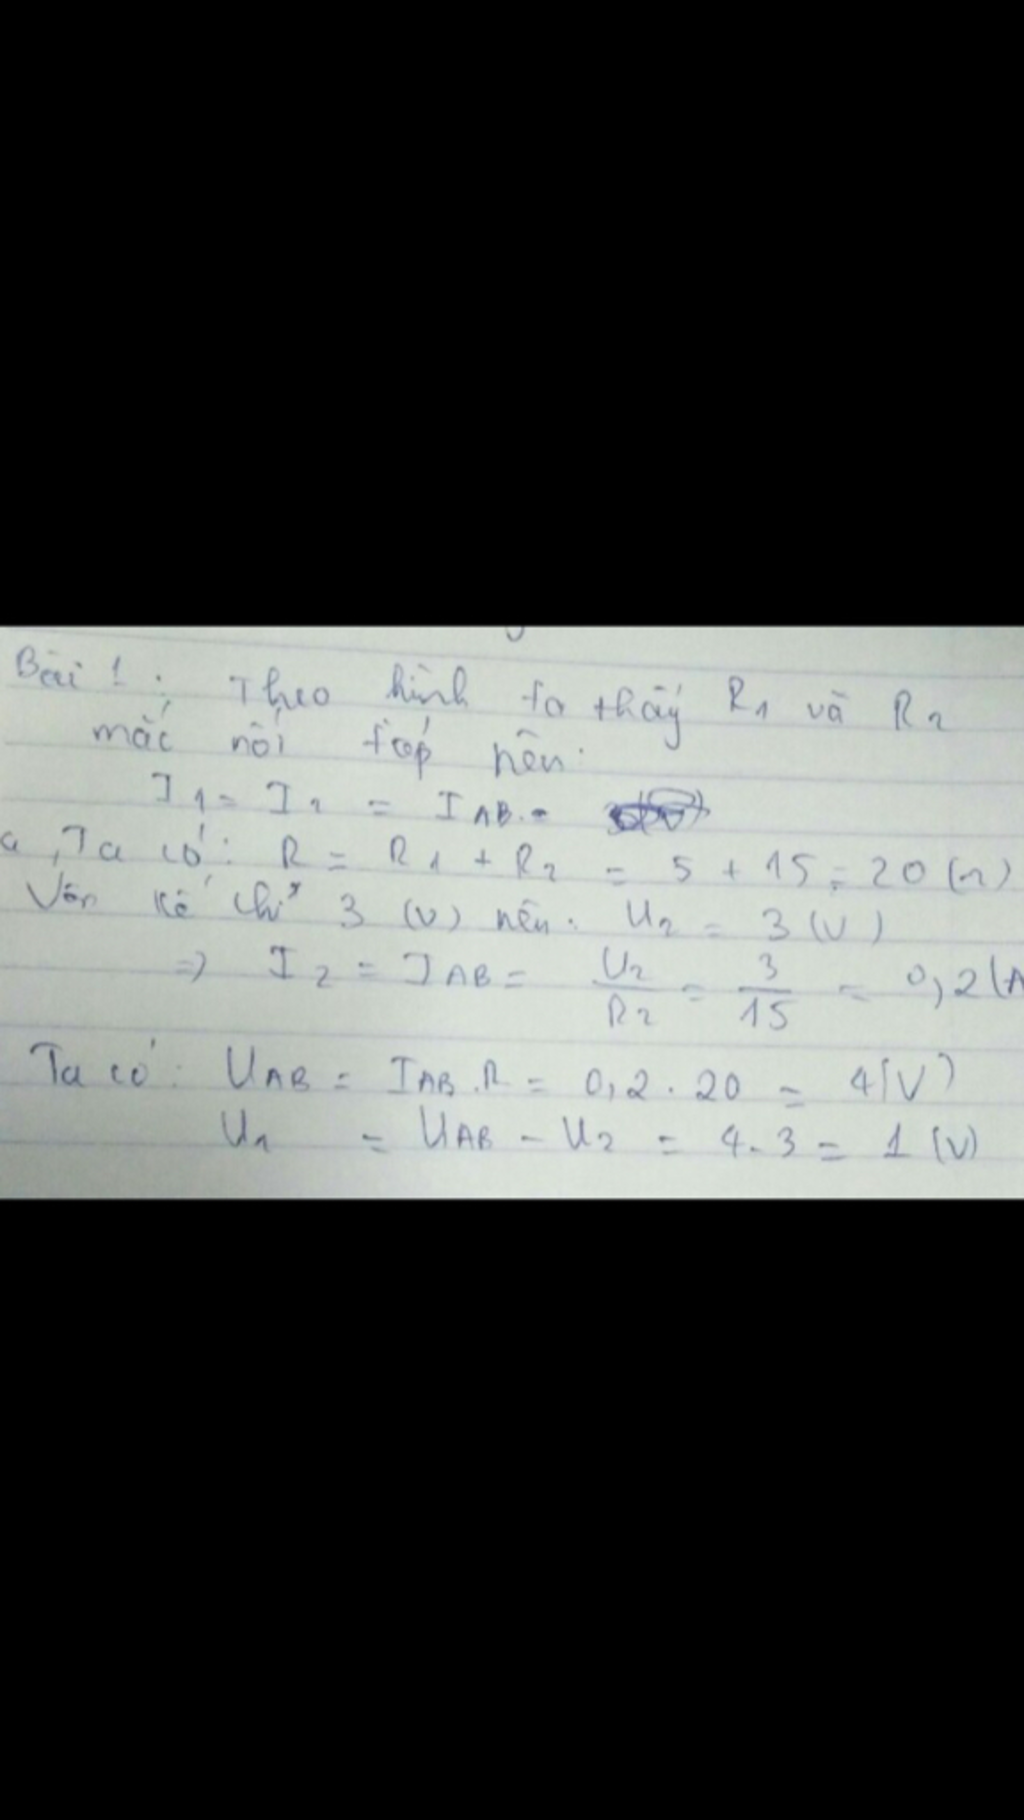 Bài 1: Theo hình ta thấy R1 và R2
mắc nối tiếp nên:
I1 = I2 = IAB =
a, Ta có: R = R1 + R2 = 5 + 15 = 20 (Ω)
Vôn kế chỉ 3 (V) nên: U2 = 3 (V)
=> I2 = IAB = U2/R2 = 3/15 = 0,2 (A
Ta có: UAB = IAB . R = 0,2 . 20 = 4 (V)
U1 = UAB - U2 = 4 - 3 = 1 (V)